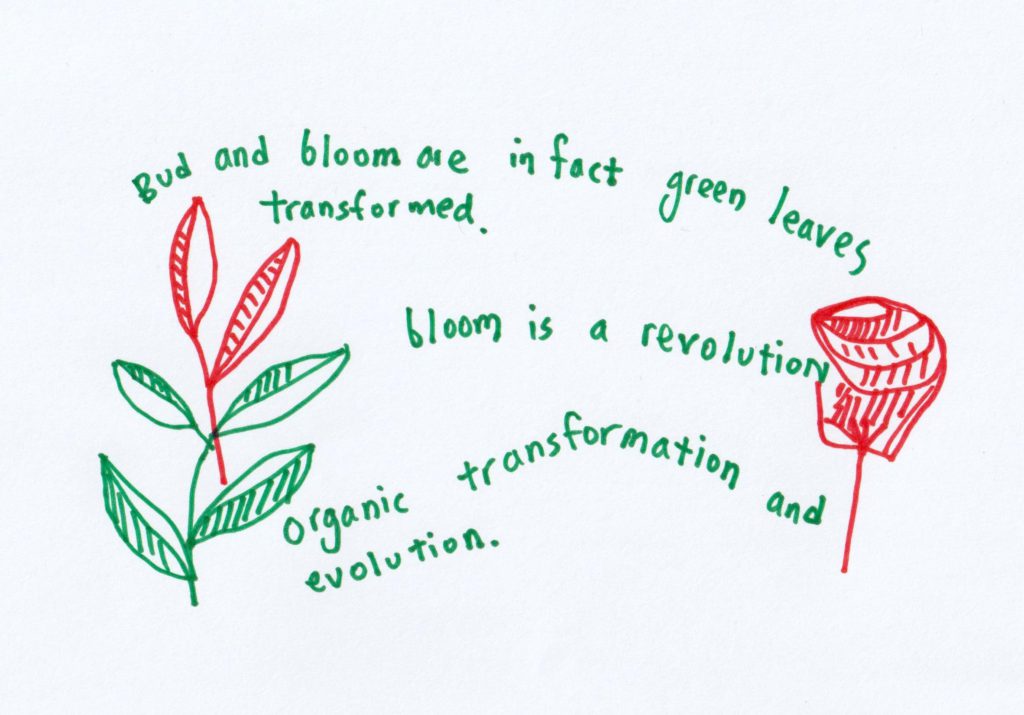 Bud and bloom are in fact green leaves
transformed.
bloom is a revolution
organic transformation and
evolution.